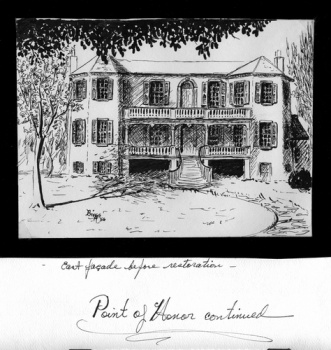 - East façade before restoration -
Point of Honor continued